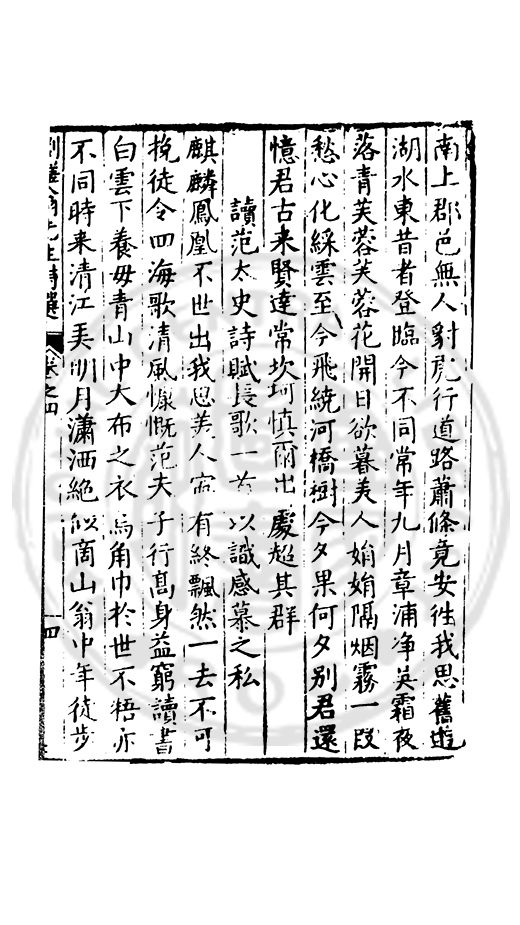 南上郡邑無人對虎行道路蕭條竟安徃我思舊遊
湖水東昔者登臨今不同常年九月章浦净吳霜夜
落青芙蓉芙蓉花開日欲暮美人娟娟隔烟霧一段
愁心化綵雲至今飛繞河橋樹今夕果何夕别君還
憶君古来賢達常坎坷慎爾出處超其群
讀范太史詩賦長歌一首以識感慕之私
麒麟鳳凰不世出我思美人寔有終飄然一去不可
挽徒令四海歌清風慷慨范夫子行髙身益窮讀書
白雲下養母青山中大布之衣烏角巾於世不牾亦
不同時来清江弄明月瀟洒絶似商山翁中年徒步
先生詩選 卷之四
四